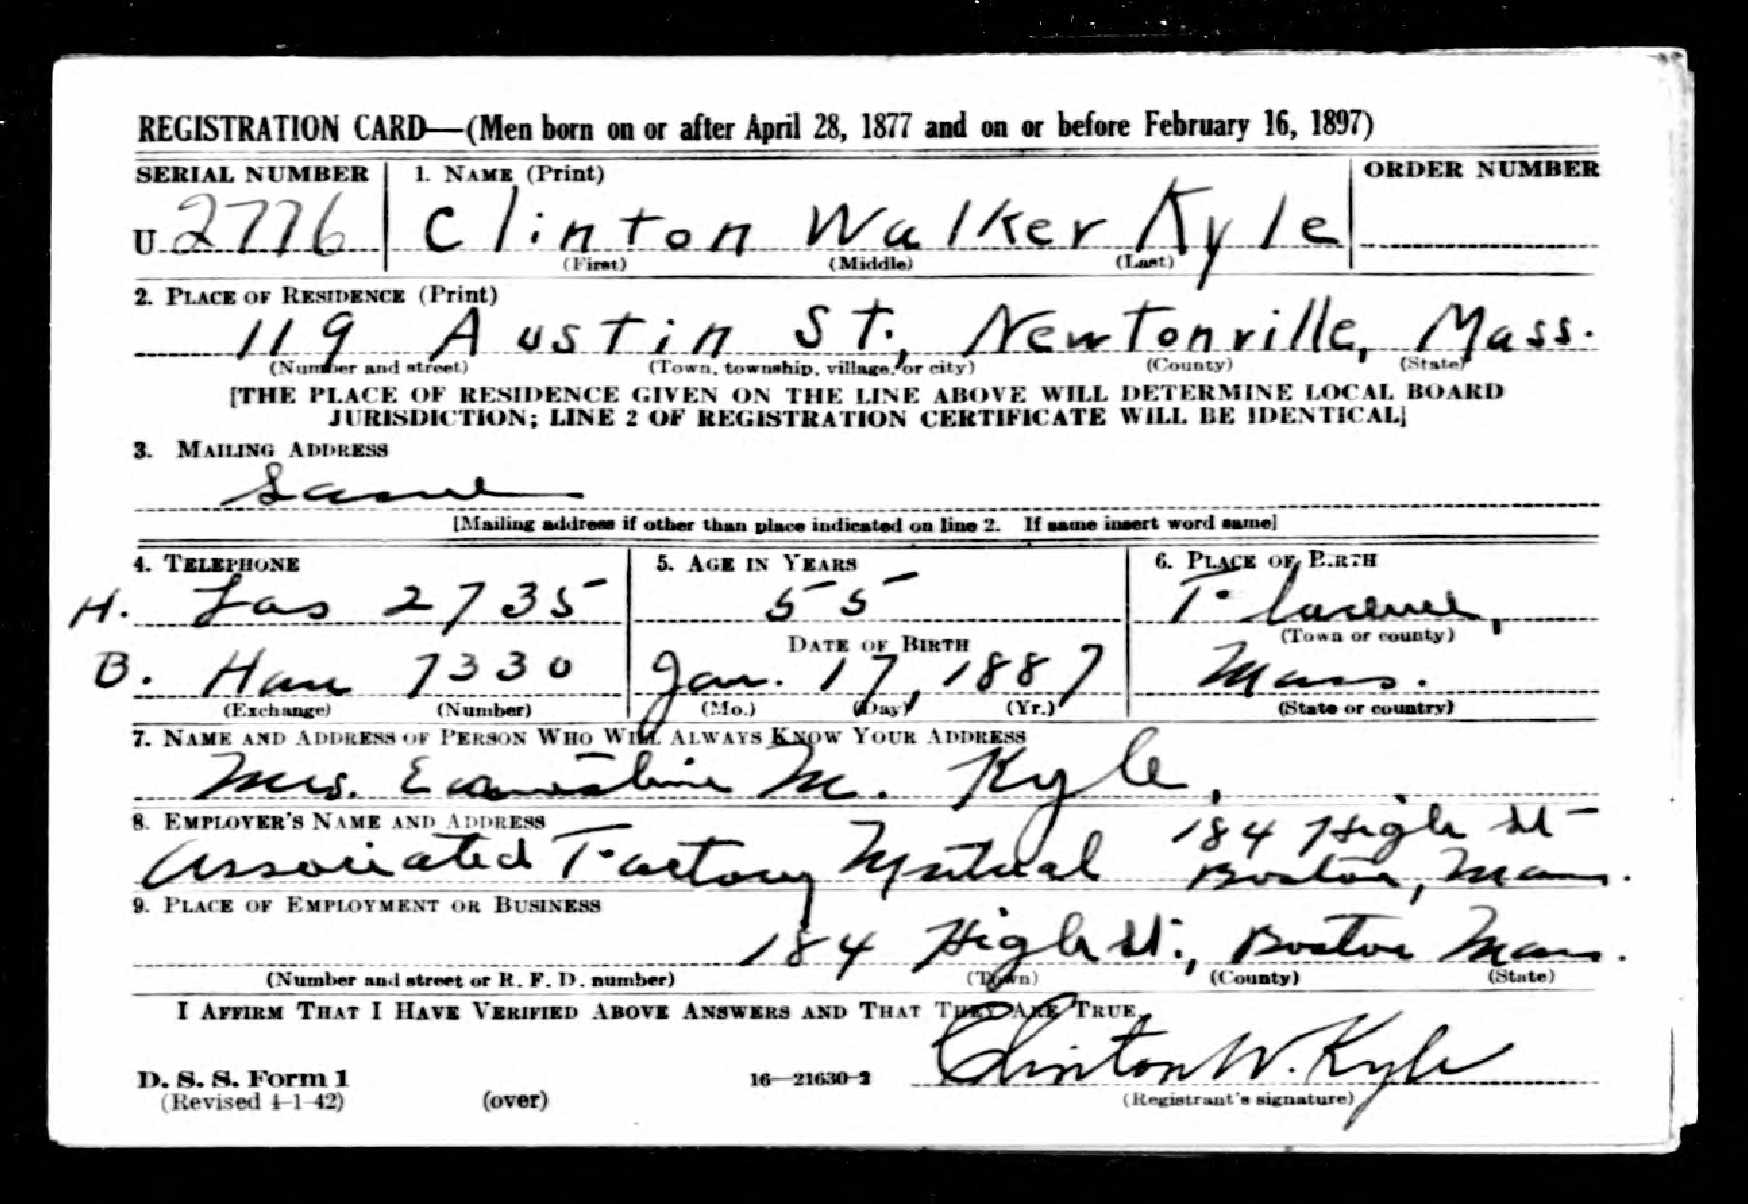 REGISTRATION CARD—(Men born on or after April 28, 1877 and on or before February 16, 1897)
SERIAL NUMBER 1. NAME (Print) ORDER NUMBER
U 2776 Clinton Walker Kyle
(First) (Middle) (Last)
2. PLACE OF RESIDENCE (Print)
119 Austin St., Newtonville, Mass.
(Number and street) (Town, township, village, or city) (County) (State)
[THE PLACE OF RESIDENCE GIVEN ON THE LINE ABOVE WILL DETERMINE LOCAL BOARD
JURISDICTION; LINE 2 OF REGISTRATION CERTIFICATE WILL BE IDENTICAL]
3. MAILING ADDRESS
Same
[Mailing address if other than place indicated on line 2. If same insert word same]
4. TELEPHONE 5. AGE IN YEARS 6. PLACE OF BIRTH
H. Las 2735 55
DATE OF BIRTH (Town or county)
B. Han 7330 Jan. 17, 1887 Mass.
(Exchange) (Number) (Mo.) (Day) (Yr.) (State or country)
7. NAME AND ADDRESS OF PERSON WHO WILL ALWAYS KNOW YOUR ADDRESS
Mrs. M. Kyle,
8. EMPLOYER'S NAME AND ADDRESS 184 High St
Associated Factory Mutual Boston, Mass.
9. PLACE OF EMPLOYMENT OR BUSINESS
184 High St., Boston Mass.
(Number and street or R. F. D. number) (Town) (County) (State)
I AFFIRM THAT I HAVE VERIFIED ABOVE ANSWERS AND THAT THEY ARE TRUE.
Clinton W. Kyle
D. S. S. Form 1 16—21630-2
(Revised 4-1-42) (over) (Registrant's signature)